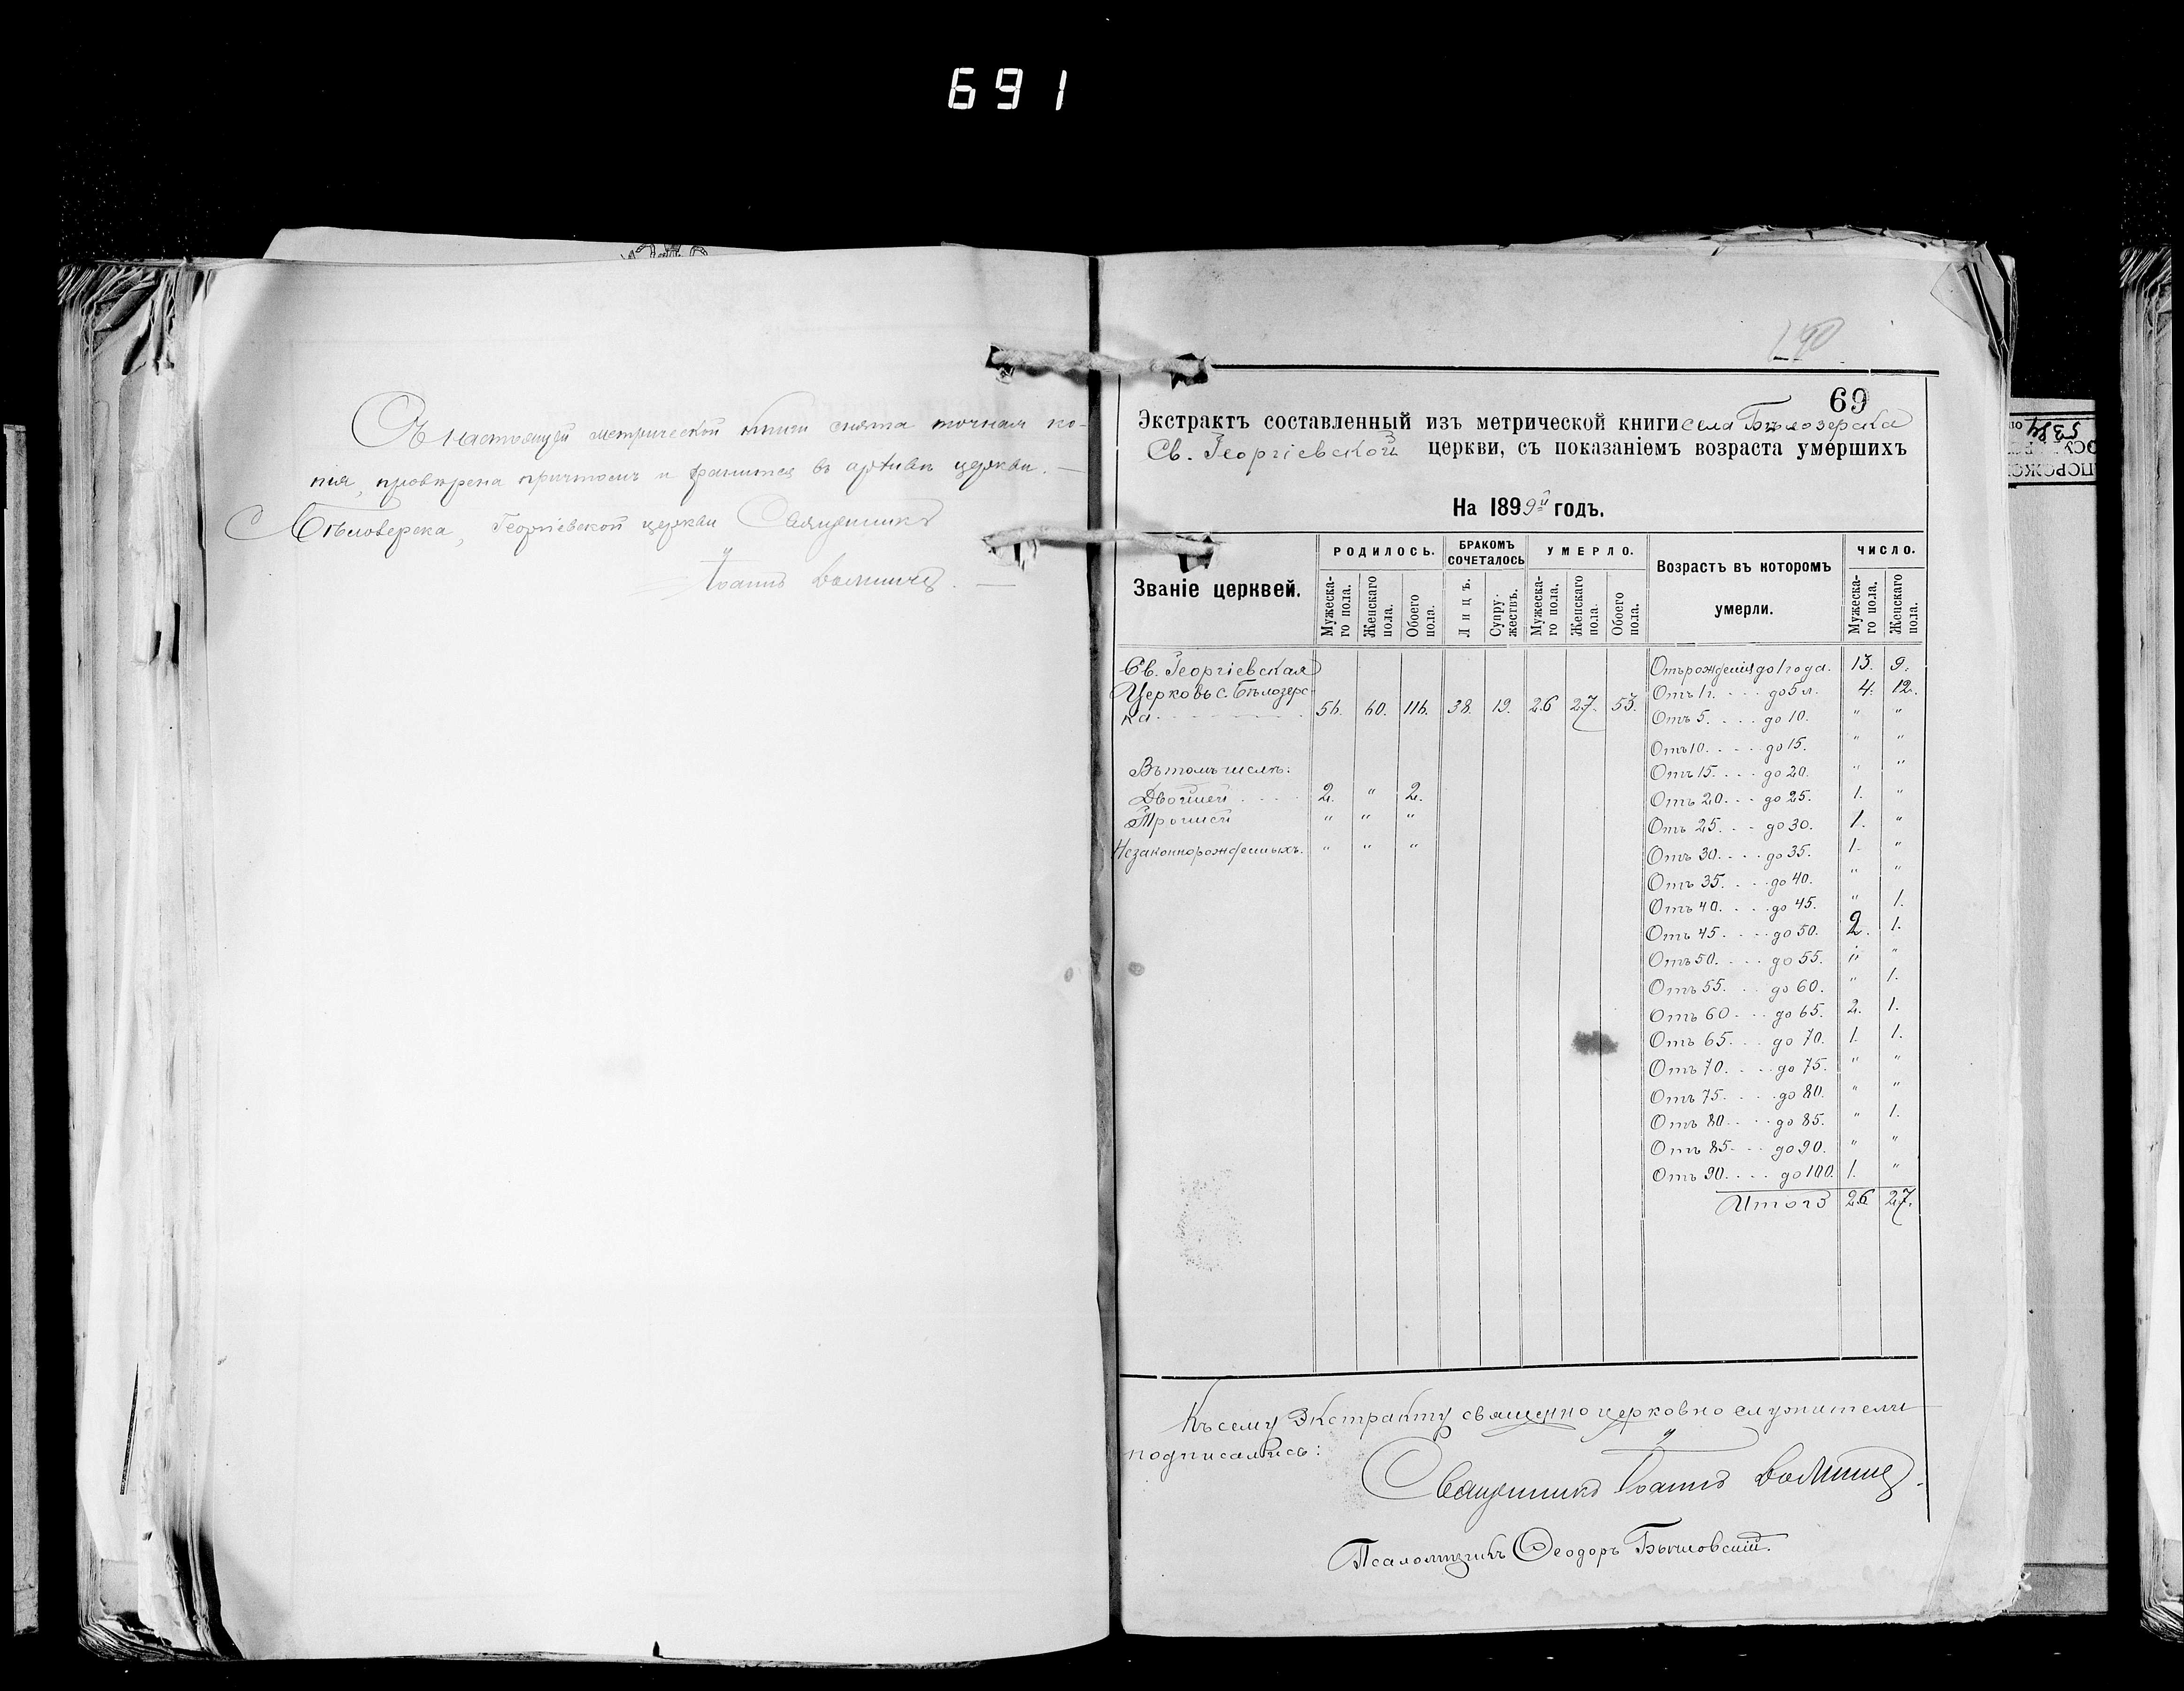 691
Съ настоящей метрической книги снята точная ко-
пія, провѣрена причтомъ и хранится въ архивѣ церкви. —
С Бѣлозерка, Георгіевской церкви Священникъ
Іоаннъ
69
Экстрактъ составленный изъ метрической книги села Бѣлозерка
Св. Георгіевской церкви, съ показаніемъ возраста умершихъ
На 1899й годъ.
Званіе церквей. РОДИЛОСЬ. БРАКОМЪ СОЧЕТАЛОСЬ УМЕРЛО. Возрастъ въ которомъ умерли. ЧИСЛО.
Мужеска-го пола. Женскаго пола. Обоего пола. Лицъ. Супру-жествъ. Мужеска-го пола. Женскаго пола. Обоего пола. Мужеска-го пола. Женскаго пола.
Св. Георгіевская
Церковь с. Бѣлозер-
ка 56. 60. 116. 38. 19. 26 27. 53.
Въ томъ числѣ:
Двойней 2. " 2.
Тройней " " "
Незаконнорожденныхъ. " " "
Отъ рожденія до 1 года. 13. 9.
Отъ 1 г. до 5 л. 4. 12.
Отъ 5. до 10. " "
Отъ 10. до 15. " "
Отъ 15. до 20. " "
Отъ 20. до 25. 1. "
Отъ 25. до 30. 1. "
Отъ 30. до 35. 1. "
Отъ 35. до 40. " "
Отъ 40. до 45. " 1.
Отъ 45. до 50. 2. 1.
Отъ 50. до 55. " "
Отъ 55. до 60. " 1.
Отъ 60 до 65. 2. 1.
Отъ 65. до 70. 1. 1.
Отъ 70. до 75. " "
Отъ 75. до 80. " "
Отъ 80. до 85. " 1.
Отъ 85. до 90. " "
Отъ 90. до 100. 1. "
Итого 26 27.
Къ сему Экстракту священно церковно служители
подписались:
Священникъ Іоаннъ
Псаломщикъ Ѳеодоръ
5384